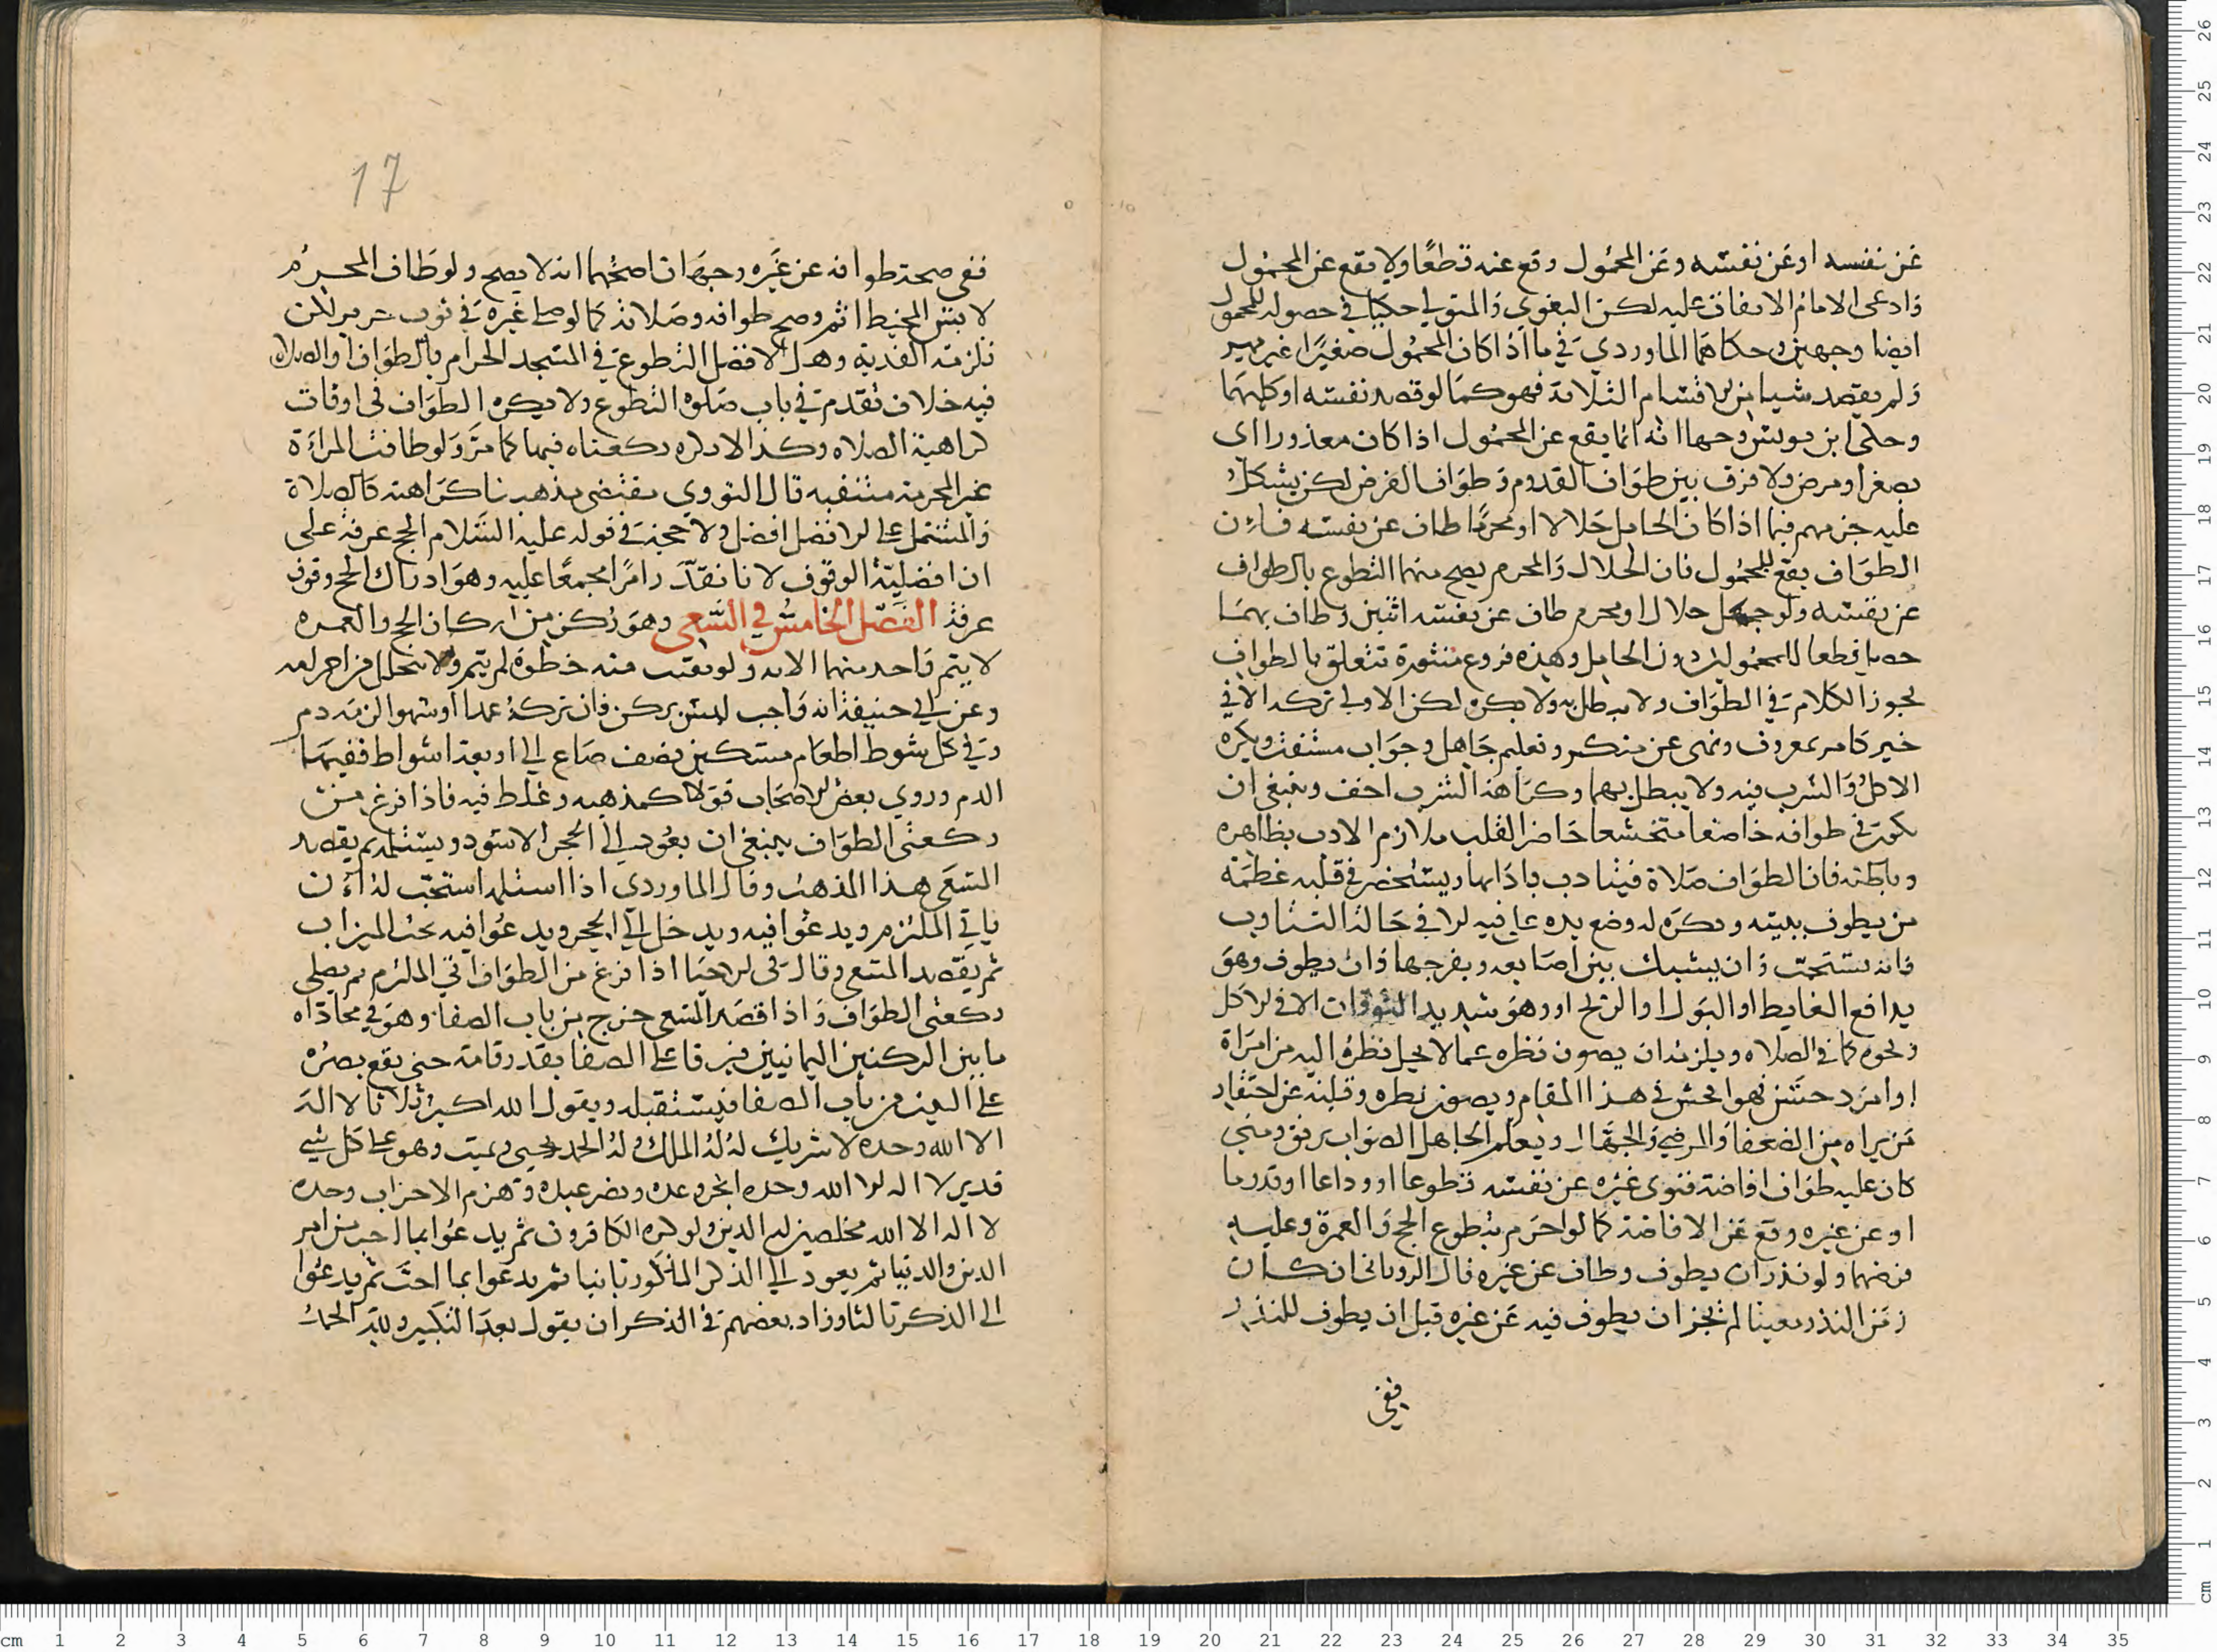 عن نفسه او عن نفسه وعن المحمول وقع عنه قطعًا ولا يقع عن المحمول
وادعى الامام الاتفاق عليه لكن البغوي والمتولي حكيا في حصوله للمحمول
ايضا وجهين وحكاهما الماوردي في ما اذا كان المحمول صغيرًا غير مميز
ولم يقصد شيا من الاقسام الثلاثة فهو كما لو قصد نفسه او كليهما
وحكى ابن يونس وجها انه انما يقع عن المحمول اذا كان معذورا اى
بصغر او مرض ولا فرق بين طواف القدوم وطواف الفرض لكن يشكل
عليه جزمهم فيما اذا كان الحامل حلالا او محرمًا طاف عن نفسه فان
الطواف يقع للمحمول فان الحلال والمحرم يصح منهما التطوع بالطواف
عن نفسه ولو حمل حلال او محرم طاف عن نفسه اثنين وطاف بهما
حصل قطعا للمحمولين دون الحامل وهذه فروع منثورة تتعلق بالطواف
يجوز الكلام في الطواف ولا يبطل به ولا يكره لكن الاولى تركه الا في
خير كامر بمعروف ونهى عن منكر وتعليم جاهل وجواب مستفت ويكره
الاكل والشرب فيه ولا يبطل بهما وكراهة الشرب اخف وينبغي ان
يكون في طوافه خاضعا متخشعا حاضر القلب ملازم الادب بظاهره
وباطنه فان الطواف صلاة فيتادب بادابها ويستحضر في قلبه عظمة
من يطوف ببيته ويكره له وضع يده على فيه الا في حالة التثاوب
فانه يستحب وان يشبك بين اصابعه ويفرجها وان يطوف وهو
يدافع الغايط او البول او الريح او وهو شديد التوقان الا في الاكل
ونحوه كما في الصلاه ويلزمه ان يصون نظره عما لا يحل نظره اليه من امراة
او امرد حسن فهو افحش في هذا المقام ويصون نظره وقلبه عن احتقار
من يراه من الضعفا والمرضى والجهال ويعلم الجاهل الصواب برفق ومتى
كان عليه طواف افاضة فنوى غيره عن نفسه تطوعا او وداعا او قدوما
او عن غيره وقع عن الافاضة كما لو احرم بتطوع الحج والعمرة وعليه
فرضهما ولو نذر ان يطوف وطاف عن غيره قال الروياني ان كان
زمن النذر معينا لم يجز ان يطوف فيه عن غيره قبل ان يطوف للنذر
ففي
17
ففي صحة طوافه عن غيره وجهان اصحهما انه لا يصح ولو طاف المحرم
لابس المخيط اثم وصح طوافه وصلاته كما لو صلى غيره في ثوب حرير لكن
تلزمه الفدية وهل الافضل التطوع في المسجد الحرام بالطواف او الصلاة
فيه خلاف تقدم في باب صلوة التطوع ولا يكره الطواف في اوقات
كراهية الصلاه وكذا لا يكره ركعتاه فيها كما مر ولو طافت المراة
غير المحرمة متنقبه قال النووي مقتضى مذهبنا كراهته كالصلاة
والمشتمل على الافضل افضل ولا حجة في قوله عليه السلام الحج عرفة على
ان افضلية الوقوف لانا نقدر امرًا مجمعًا عليه وهو ادراك الحج وقوف
عرفة الفصل الخامس في السعي وهو ركن من اركان الحج والعمره
لا يتم واحد منهما الا به ولو بقيت منه خطوة لم يتم ولا يتحلل من احرامه
وعن ابي حنيفة انه واجب ليس بركن فان تركه عمدا او سهوا لزمه دم
وفي كل شوط اطعام مسكين نصف صاع الى اربعة اشواط ففيها
الدم وروي بعض الاصحاب قولا كمذهبه وغلط فيه فاذا فرغ من
ركعتى الطواف ينبغي ان يعود الى الحجر الاسود ويستلمه ثم يقصد
السعي هذا المذهب وقال الماوردي اذا استلمه استحب له ان
ياتي الملتزم ويدعوا فيه ويدخل الى الحجر ويدعوا فيه تحت الميزاب
ثم يقصد السعي وقال في الاحيا اذا فرغ من الطواف اتى الملتزم ثم يصلي
ركعتى الطواف واذا قصد السعي خرج من باب الصفا وهو في محاذاه
ما بين الركنين اليمانيين فيرقا على الصفا بقدر قامة حتى يقع بصره
على البيت من باب الصفا فيستقبله ويقول الله اكبر ثلاثا لا اله
الا الله وحده لا شريك له له الملك وله الحمد يحيي ويميت وهو على كل شي
قدير لا اله الا الله وحده انجز وعده ونصر عبده وهزم الاحزاب وحده
لا اله الا الله مخلصين له الدين ولو كره الكافرون ثم يدعوا بما احب من امر
الدين والدنيا ثم يعود الى الذكر المذكور ثانيا ثم يدعوا بما احب ثم يدعوا
الى الذكر ثالثا وزاد بعضهم في الذكر ان يقول بعد التكبير ولله الحمد